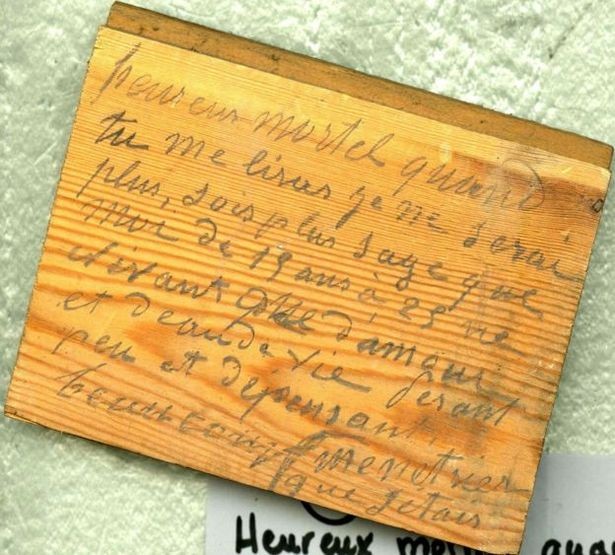 heureux mortel quand
tu me liras je ne serai
plus, sois plus sage que
moi de 19 ans à 25 ne
vivant que d'amour
et d'eau de vie fesant
peu et dépensant
beaucoup menetrier
que j'etais
Heureux